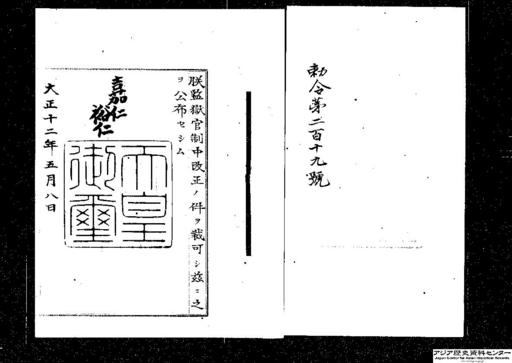 勅令第二百十九號
朕監獄官制中改正ノ件ヲ裁可シ茲ニ之
ヲ公布セシム
嘉仁
裕仁
天皇
御璽
大正十二年五月八日
アジア歴史資料センター
Japan Center for Asian Historical Records